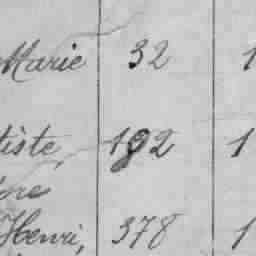 Marie 32 1
tiste, 192 1
bre
Henri, 378 1